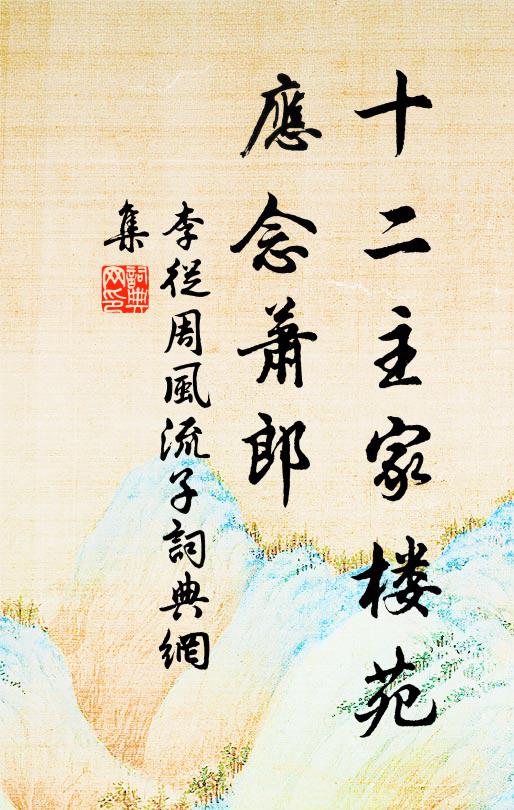 十二主家楼苑
應念蕭郎
李從周風流子詞典網
集
詞典網印